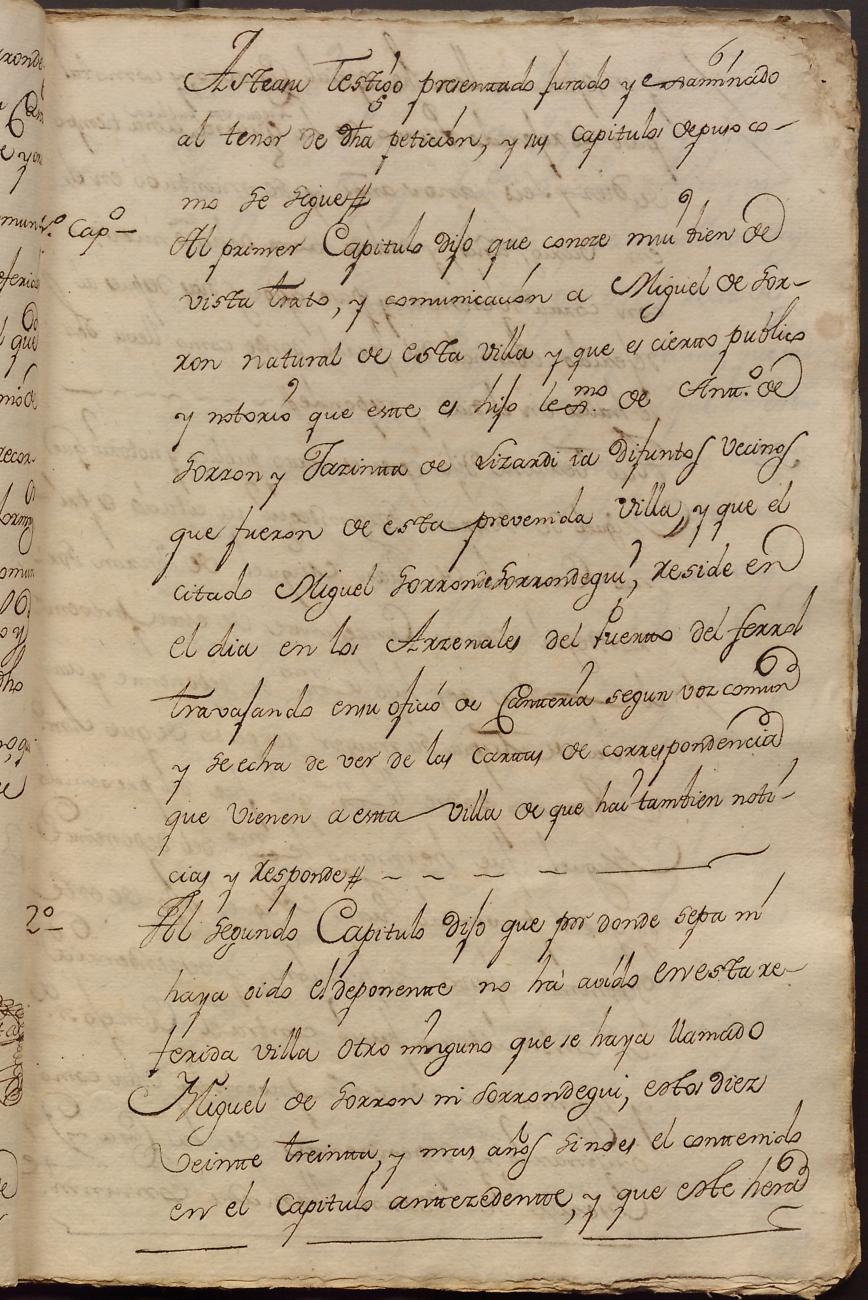 6
Asteasu testigo presenttado jurado y examinado
al tenor de dha petición, y sus capitulos depuso co-
mo se sigue#
1.º Capº
Al primer Capitulo dijo que conoze mui bien de
vista trato, y comunicación a Miguel de Sor-
ron natural de esta villa y que es ciertto publico
y notorio que estte es hijo lexmo. de Antt.º de
Sorron y Jazintta de Lizardi ia difuntos vecinos
que fueron de esta prevenida villa, y que el
citado Miguel Sorron de Sorrondegui, reside en
el dia en los Arzenales del Puertto del ferrol
travajando en su ofició de Cantteria segun voz comun
y se echa de ver de las Carttas de correspondencia
que vienen a estta villa de que hai tambien noti-
cias y Responde#
2º
Al segundo Capitulo dijo que por donde sepa ni
haya oido el deponentte no há avido en esta re-
ferida villa otro ninguno que se haya llamado
Miguel de Sorron ni Sorrondegui, estos diez
veintte treintta, y mas años sino es el conttenido
en el Capitulo anttezedentte, y que este hera